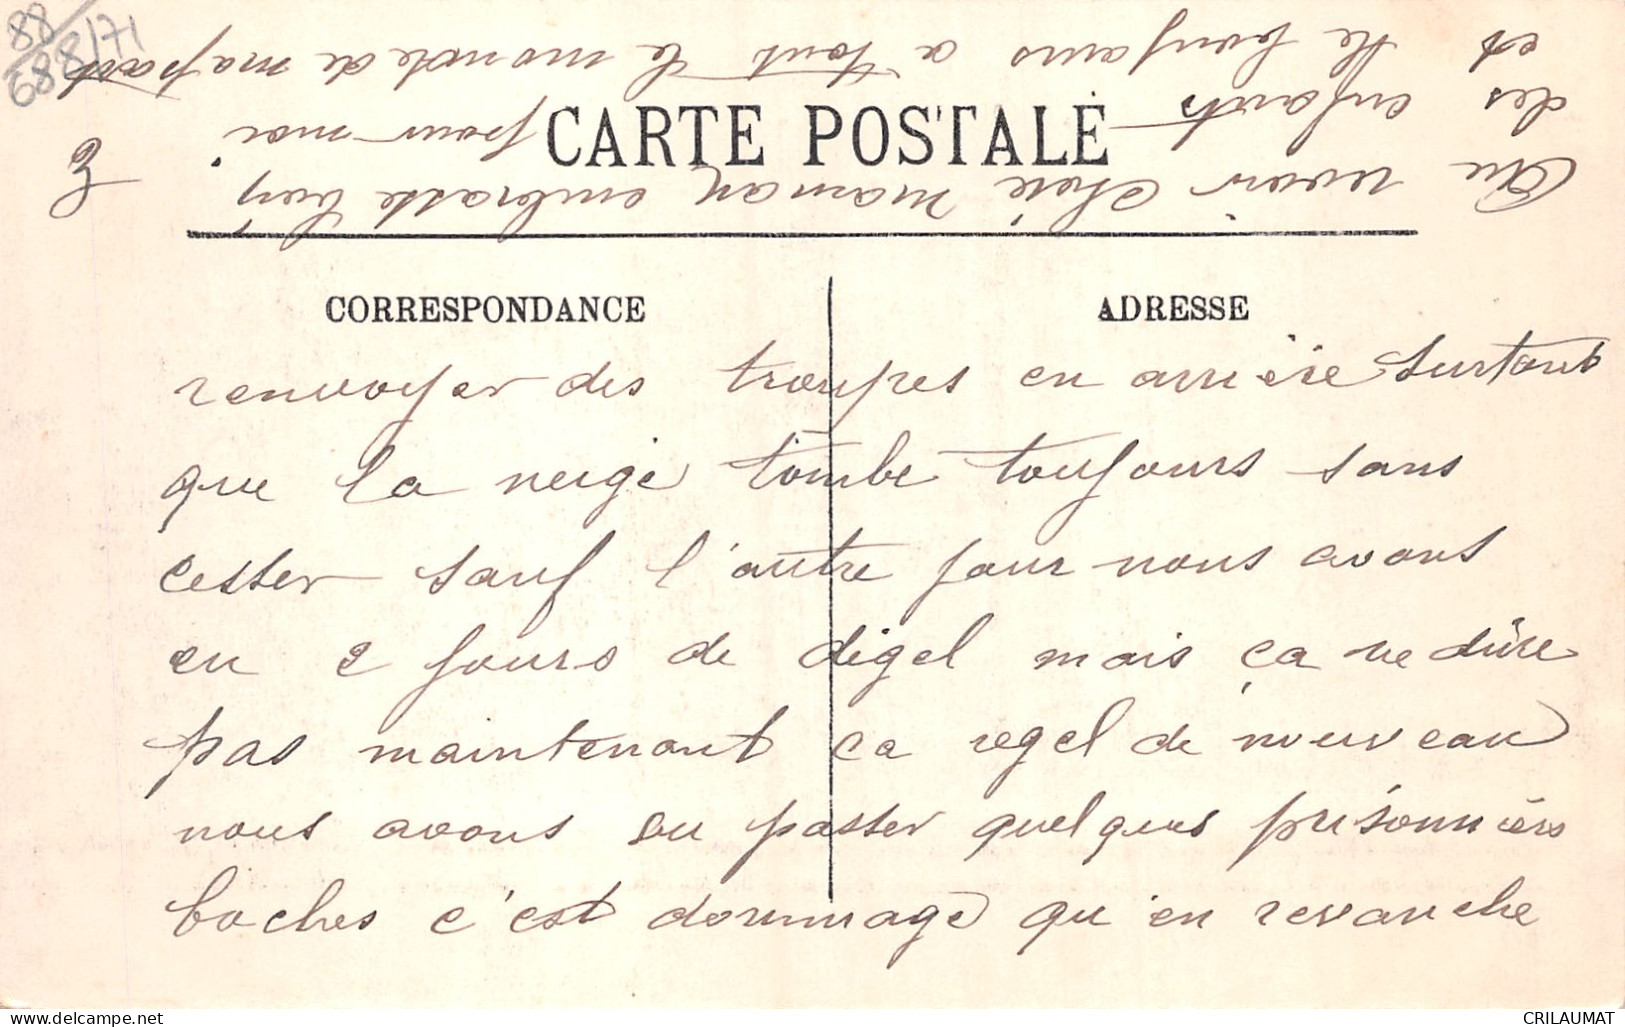 88
688/71
CARTE POSTALE
CORRESPONDANCE
ADRESSE
renvoyer des troupes en arrière surtout
que la neige tombe toujours sans
cesser sauf l'autre jour nous avons
eu 2 jours de digel mais ça ne dure
pas maintenant ca regel de nouveau
nous avons vu passer quelques prisonniers
boches c'est dommage qu'en revanche
Au revoir Chère maman embrasse bien
des enfants pour moi
et le bonjour a tout le monde de ma part
www.delcampe.net
CRILAUMAT